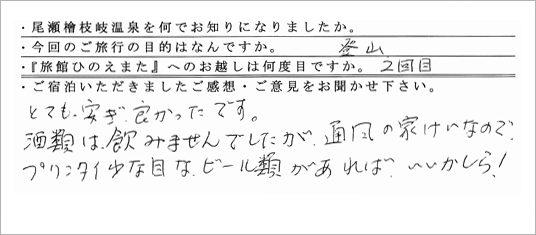 ・尾瀬檜枝岐温泉を何でお知りになりましたか。
・今回のご旅行の目的はなんですか。 登山
・『旅館ひのえまた』へのお越しは何度目ですか。 2回目
・ご宿泊いただきましたご感想・ご意見をお聞かせ下さい。
とても、安ぎ、良かったです。
酒類は、飲みませんでしたが、通風の家けいなので、
プリンタイ少な目な、ビール類があれば、いいかしら!